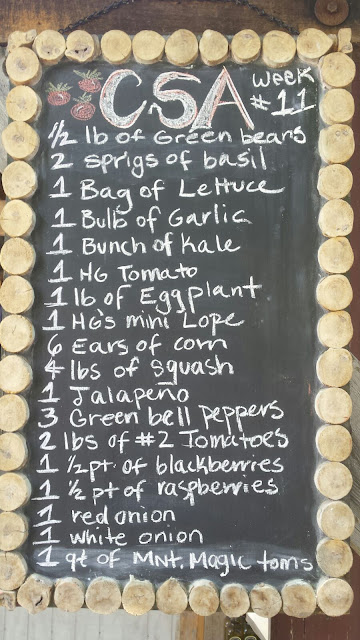 CSA week
#11
1/2 lb of Green beans
2 sprigs of basil
1 Bag of Lettuce
1 Bulb of Garlic
1 Bunch of Kale
1 HG Tomato
1 lb of Eggplant
1 HG's mini Lope
6 Ears of corn
4 lbs of squash
1 Jalapeño
3 Green bell peppers
2 lbs of #2 Tomatoes
1 1/2 pt of blackberries
1 1/2 pt of raspberries
1 red onion
1 white onion
1 qt of Mnt. Magic toms